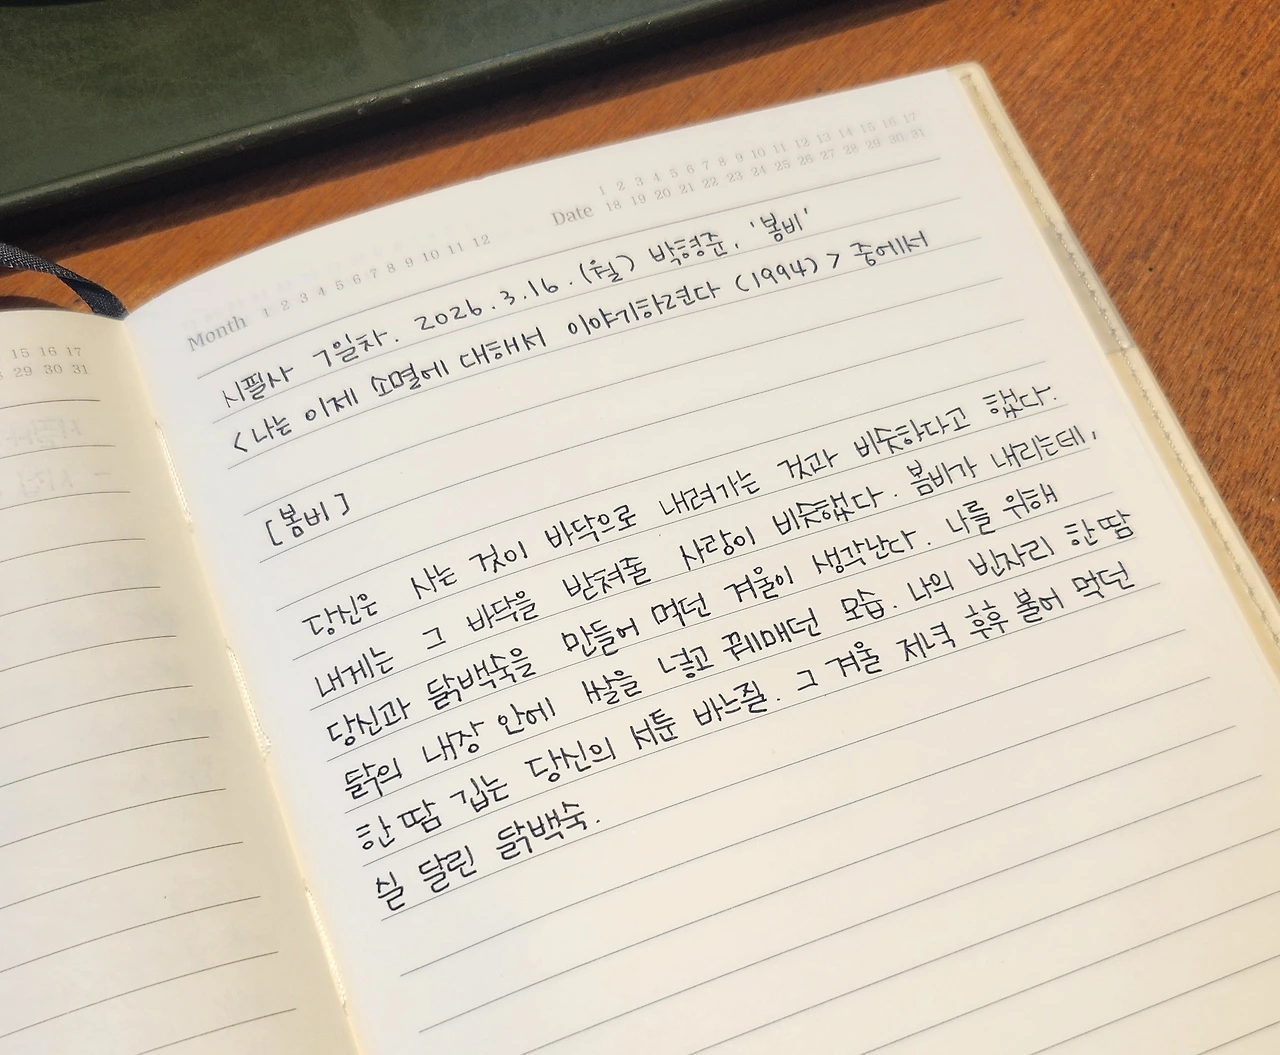 Month 1 2 3 4 5 6 7 8 9 10 11 12
Date 1 2 3 4 5 6 7 8 9 10 11 12 13 14 15 16 17
18 19 20 21 22 23 24 25 26 27 28 29 30 31
시필사 7일차. 2026.3.16.(월) 박형준, '봄비'
<나는 이제 소멸에 대해서 이야기하련다 (1994)> 중에서
[봄비]
당신은 사는 것이 바닥으로 내려가는 것과 비슷하다고 했다.
내게는 그 바닥을 받쳐줄 사랑이 비슷했다. 봄비가 내리는데,
당신과 닭백숙을 만들어 먹던 겨울이 생각난다. 나를 위해
닭의 내장 안에 쌀을 넣고 꿰매던 모습. 나의 빈자리 한 땀
한 땀 깁는 당신의 서툰 바느질. 그 겨울 저녁 후후 불어 먹던
실 달린 닭백숙.
15 16 17
29 30 31